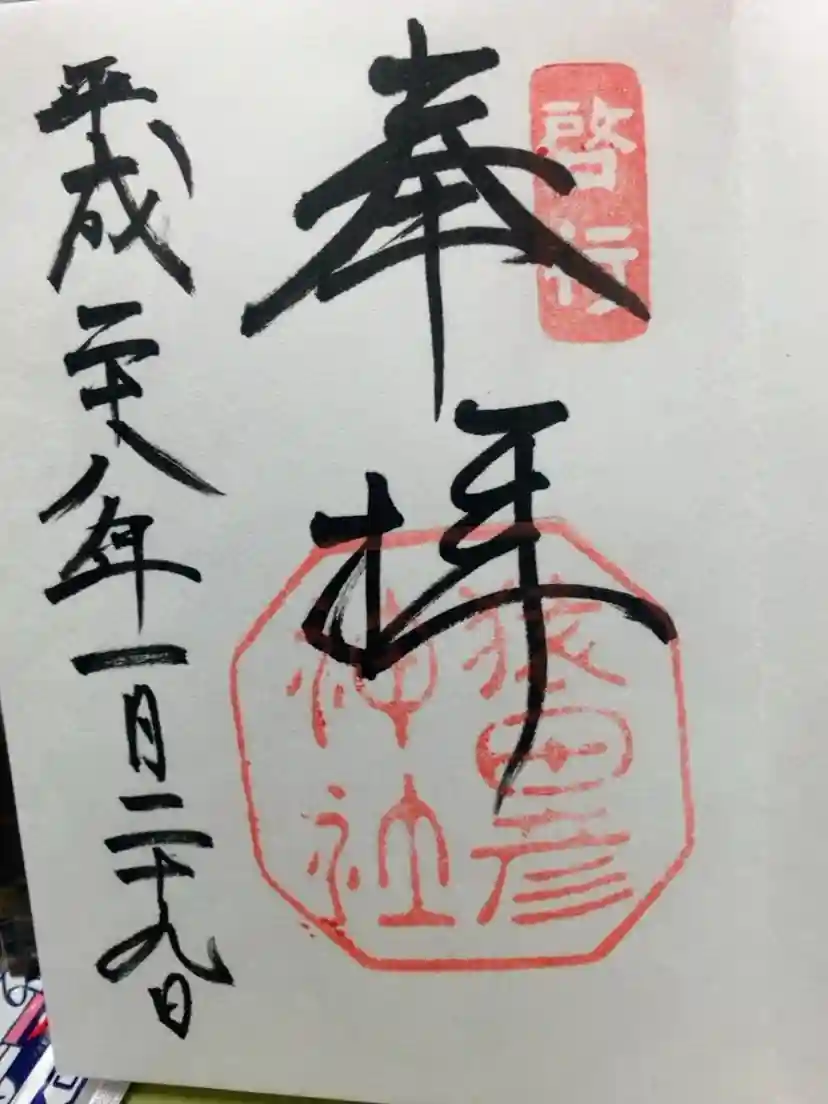 啓行
奉拝
猿田彦
神社
平成二十八年一月二十九日